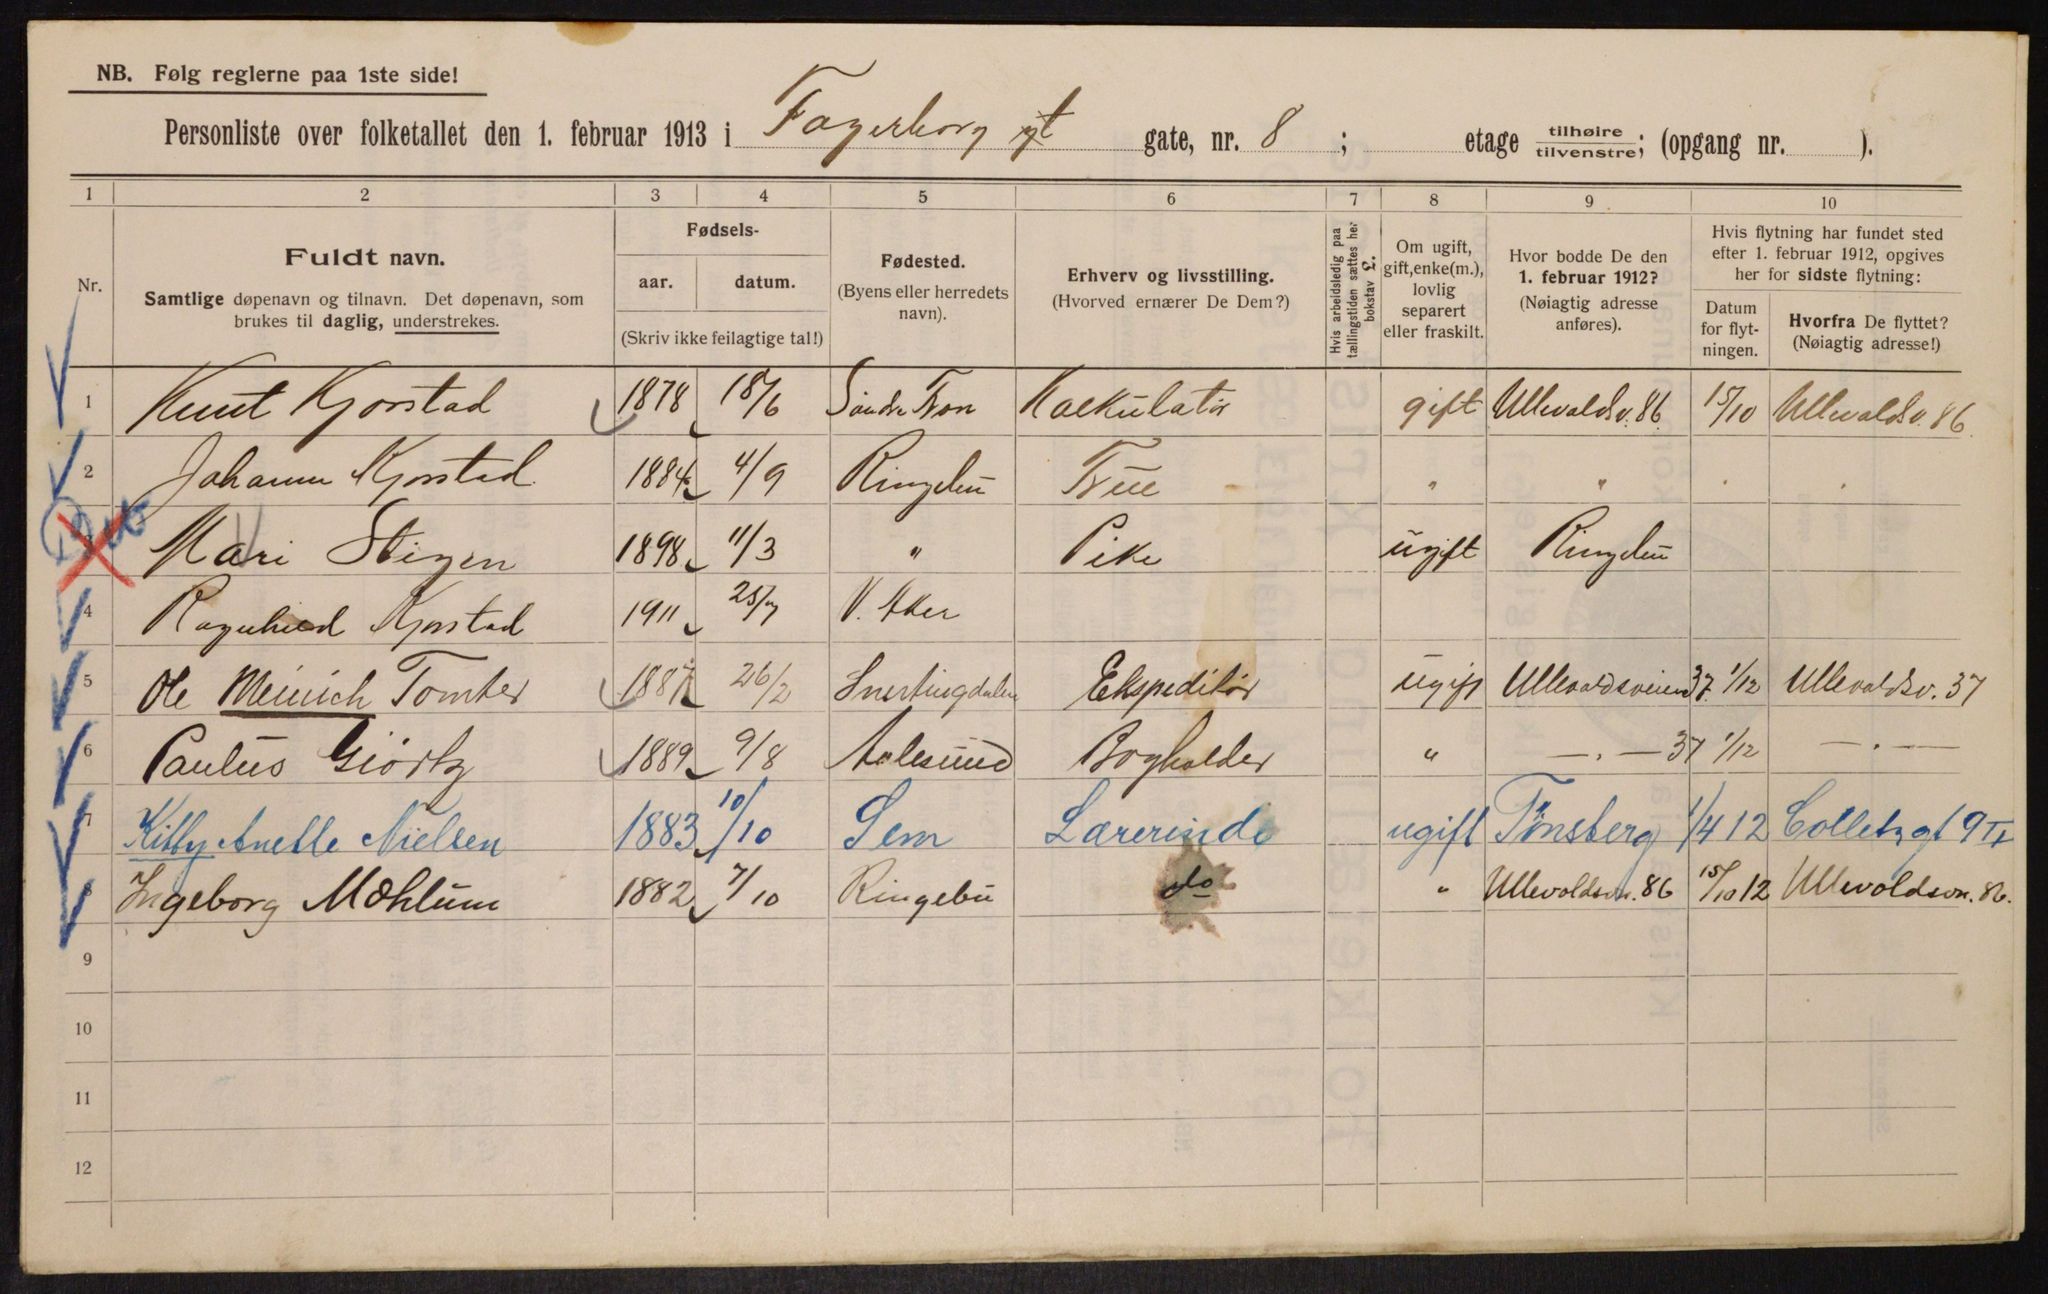 NB. Følg reglerne paa 1ste side!
Personliste over folketallet den 1. februar 1913 i Fagerborg gt gate, nr. 8 ; etage tilhøire / tilvenstre; (opgang nr. ).
1 2 3 4 5 6 7 8 9 10
Nr.
Fuldt navn.
Samtlige døpenavn og tilnavn. Det døpenavn, som
brukes til daglig, understrekes.
Fødsels-
aar. datum.
(Skriv ikke feilagtige tal!)
Fødested.
(Byens eller herredets
navn).
Erhverv og livsstilling.
(Hvorved ernærer De Dem?)
Hvis arbeidsledig paa
tællingstiden sættes her
bokstav L.
Om ugift,
gift, enke(m.),
lovlig
separert
eller fraskilt.
Hvor bodde De den
1. februar 1912?
(Nøiagtig adresse
anføres).
Hvis flytning har fundet sted
efter 1. februar 1912, opgives
her for sidste flytning:
Datum
for flyt-
ningen.
Hvorfra De flyttet?
(Nøiagtig adresse!)
1 Knut Kjorstad 1878 18/6 Söndre Fron Kalkulatør gift Ullevaldsv. 86 15/10 Ullevaldsv. 86
2 Johanne Kjorstad 1884 4/9 Ringebu Frue " "
3 Mari Stigen 1898 11/3 " Pike ugift Ringebu
4 Ragnhild Kjorstad 1911 25/7 V. Aker
5 Ole Meinich Tomter 1887 26/2 Snertingdalen Ekspeditør ugift Ullevaldsveien 37. 1/12 Ullevaldsv. 37
6 Paulus Giørtz 1889 9/8 Aalesund Bogholder " —.— 37 1/12 —.—
7 Kitty Anette Nielsen 1883 10/10 Sem Lærerinde ugift Tønsberg 1/4 12 Colletsgt 9 II
8 Ingeborg Mæhlum 1882 7/10 Ringebu do " Ullevoldsvn. 86 15/10 12 Ullevoldsvn. 86.
9
10
11
12